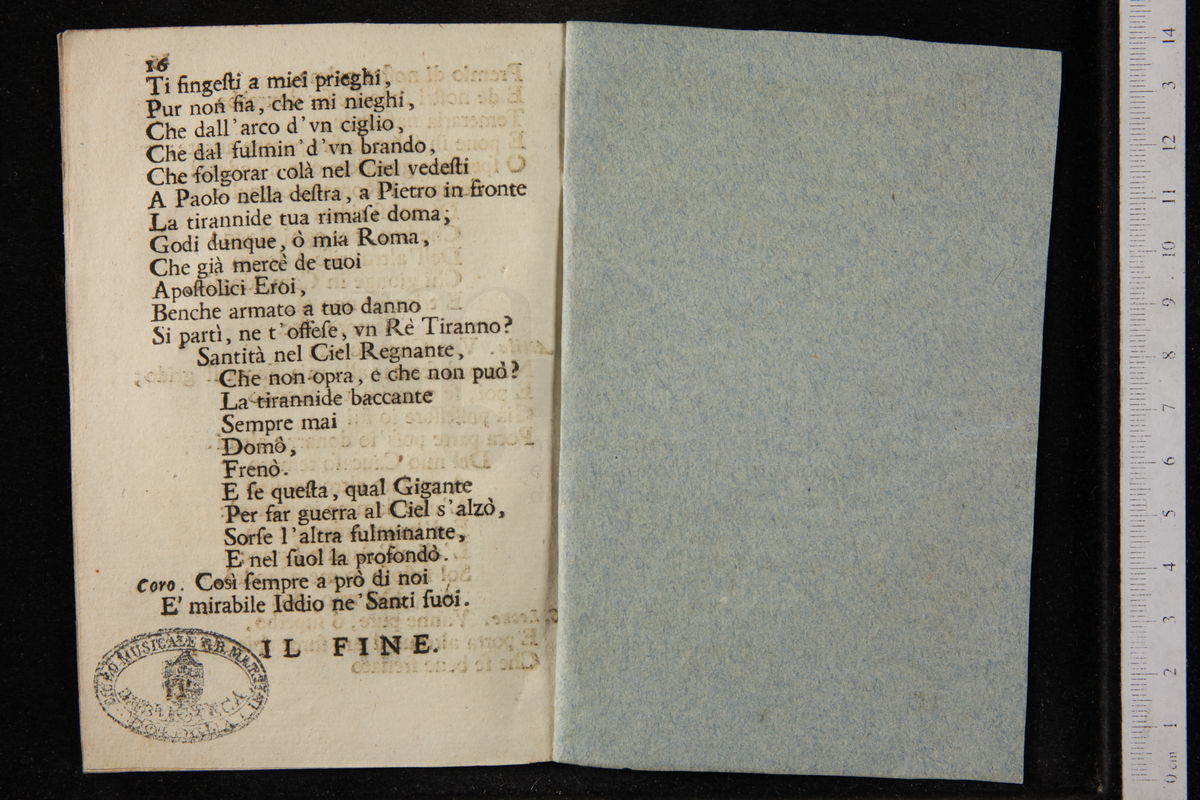 16
Ti fingeſti a miei prieghi,
Pur non fia, che mi nieghi,
Che dall'arco d'vn ciglio,
Che dal fulmin'd'vn brando,
Che folgorar colà nel Ciel vedeſti
A Paolo nella deſtra, a Pietro in fronte
La tirannide tua rimaſe doma;
Godi dunque, ò mia Roma,
Che già mercè de tuoi
Apoſtolici Eroi,
Benche armato a tuo danno
Si partì, ne t'offeſe, vn Rè Tiranno?
Santità nel Ciel Regnante,
Che non opra, e che non può?
La tirannide baccante
Sempre mai
Domô,
Frenò.
E ſe queſta, qual Gigante
Per far guerra al Ciel s'alzò,
Sorſe l'altra fulminante,
E nel ſuol la profondò.
Coro. Così ſempre a prò di noi
E' mirabile Iddio ne'Santi ſuoi.
IL FINE.
LICEO MUSICALE G.B. MARTINI
BIBLIOTECA
BOLOGNA
14
3
12
11
10
9
8
7
6
5
4
3
2
1
0 cm